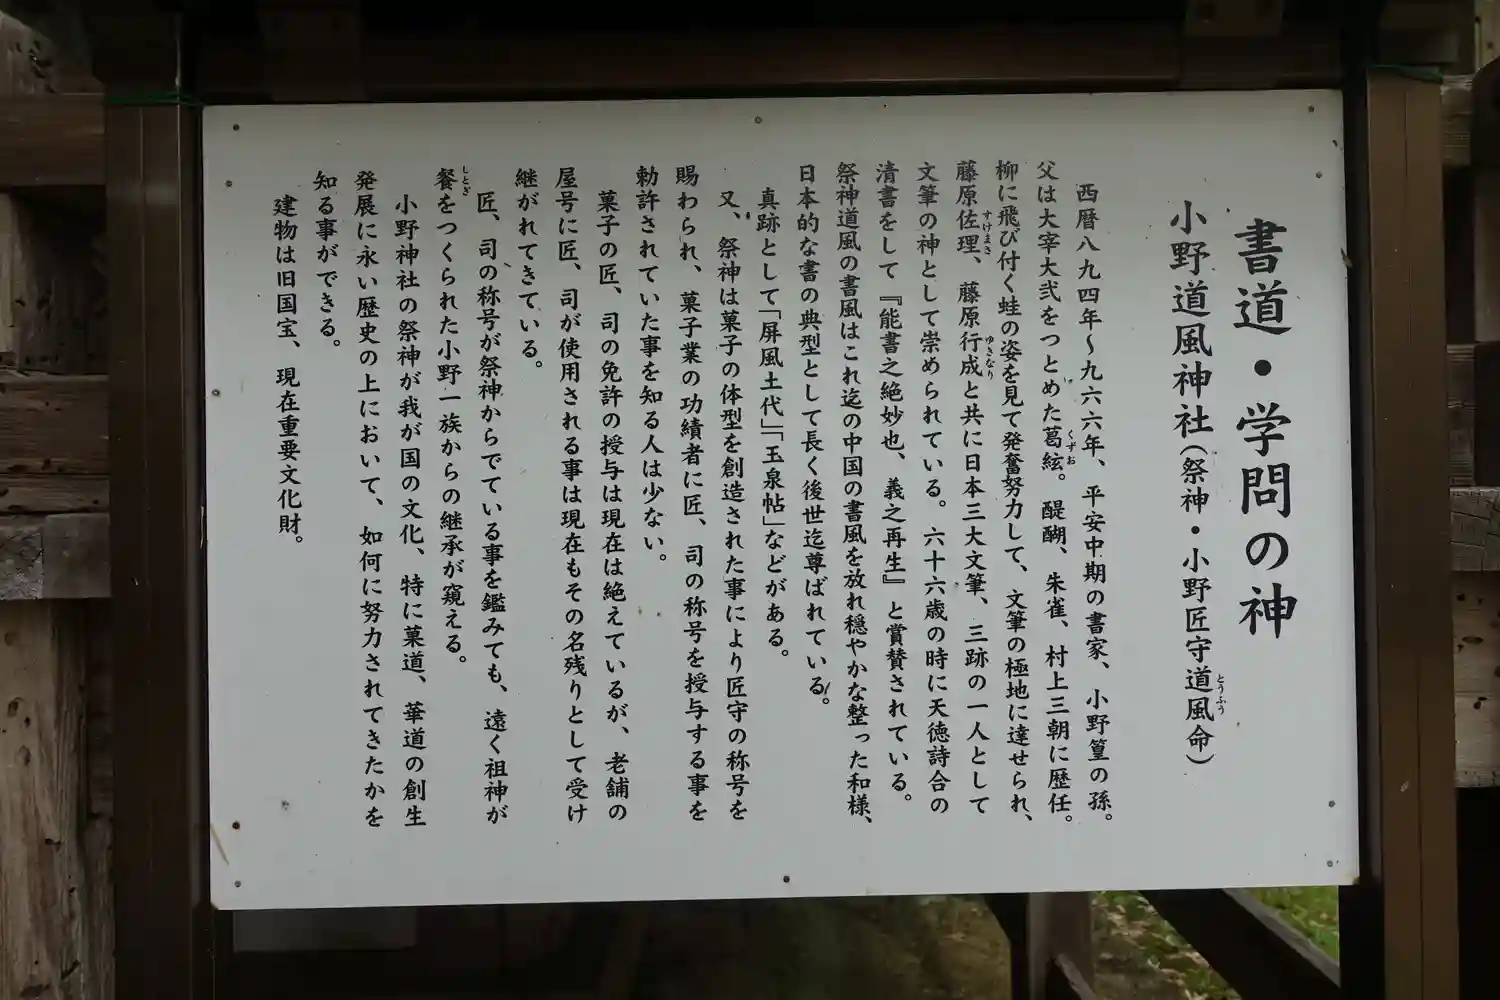 書道・学問の神
小野道風神社(祭神・小野匠守道風命)
とうふう
西暦八九四年〜九六六年、平安中期の書家、小野篁の孫。
父は大宰大弐をつとめた葛絃。醍醐、朱雀、村上三朝に歴任。
くずお
柳に飛び付く蛙の姿を見て発奮努力して、文筆の極地に達せられ、
藤原佐理、藤原行成と共に日本三大文筆、三跡の一人として
すけまさ
ゆきなり
文筆の神として崇められている。六十六歳の時に天徳詩合の
清書をして『能書之絶妙也、義之再生』と賞賛されている。
祭神道風の書風はこれ迄の中国の書風を放れ穏やかな整った和様、
日本的な書の典型として長く後世迄尊ばれている。
真跡として「屏風土代」「玉泉帖」などがある。
又、祭神は菓子の体型を創造された事により匠守の称号を
賜わられ、菓子業の功績者に匠、司の称号を授与する事を
勅許されていた事を知る人は少ない。
菓子の匠、司の免許の授与は現在は絶えているが、老舗の
屋号に匠、司が使用される事は現在もその名残りとして受け
継がれてきている。
匠、司の称号が祭神からでている事を鑑みても、遠く祖神が
餐をつくられた小野一族からの継承が窺える。
しとぎ
小野神社の祭神が我が国の文化、特に菓道、華道の創生
発展に永い歴史の上において、如何に努力されてきたかを
知る事ができる。
建物は旧国宝、現在重要文化財。